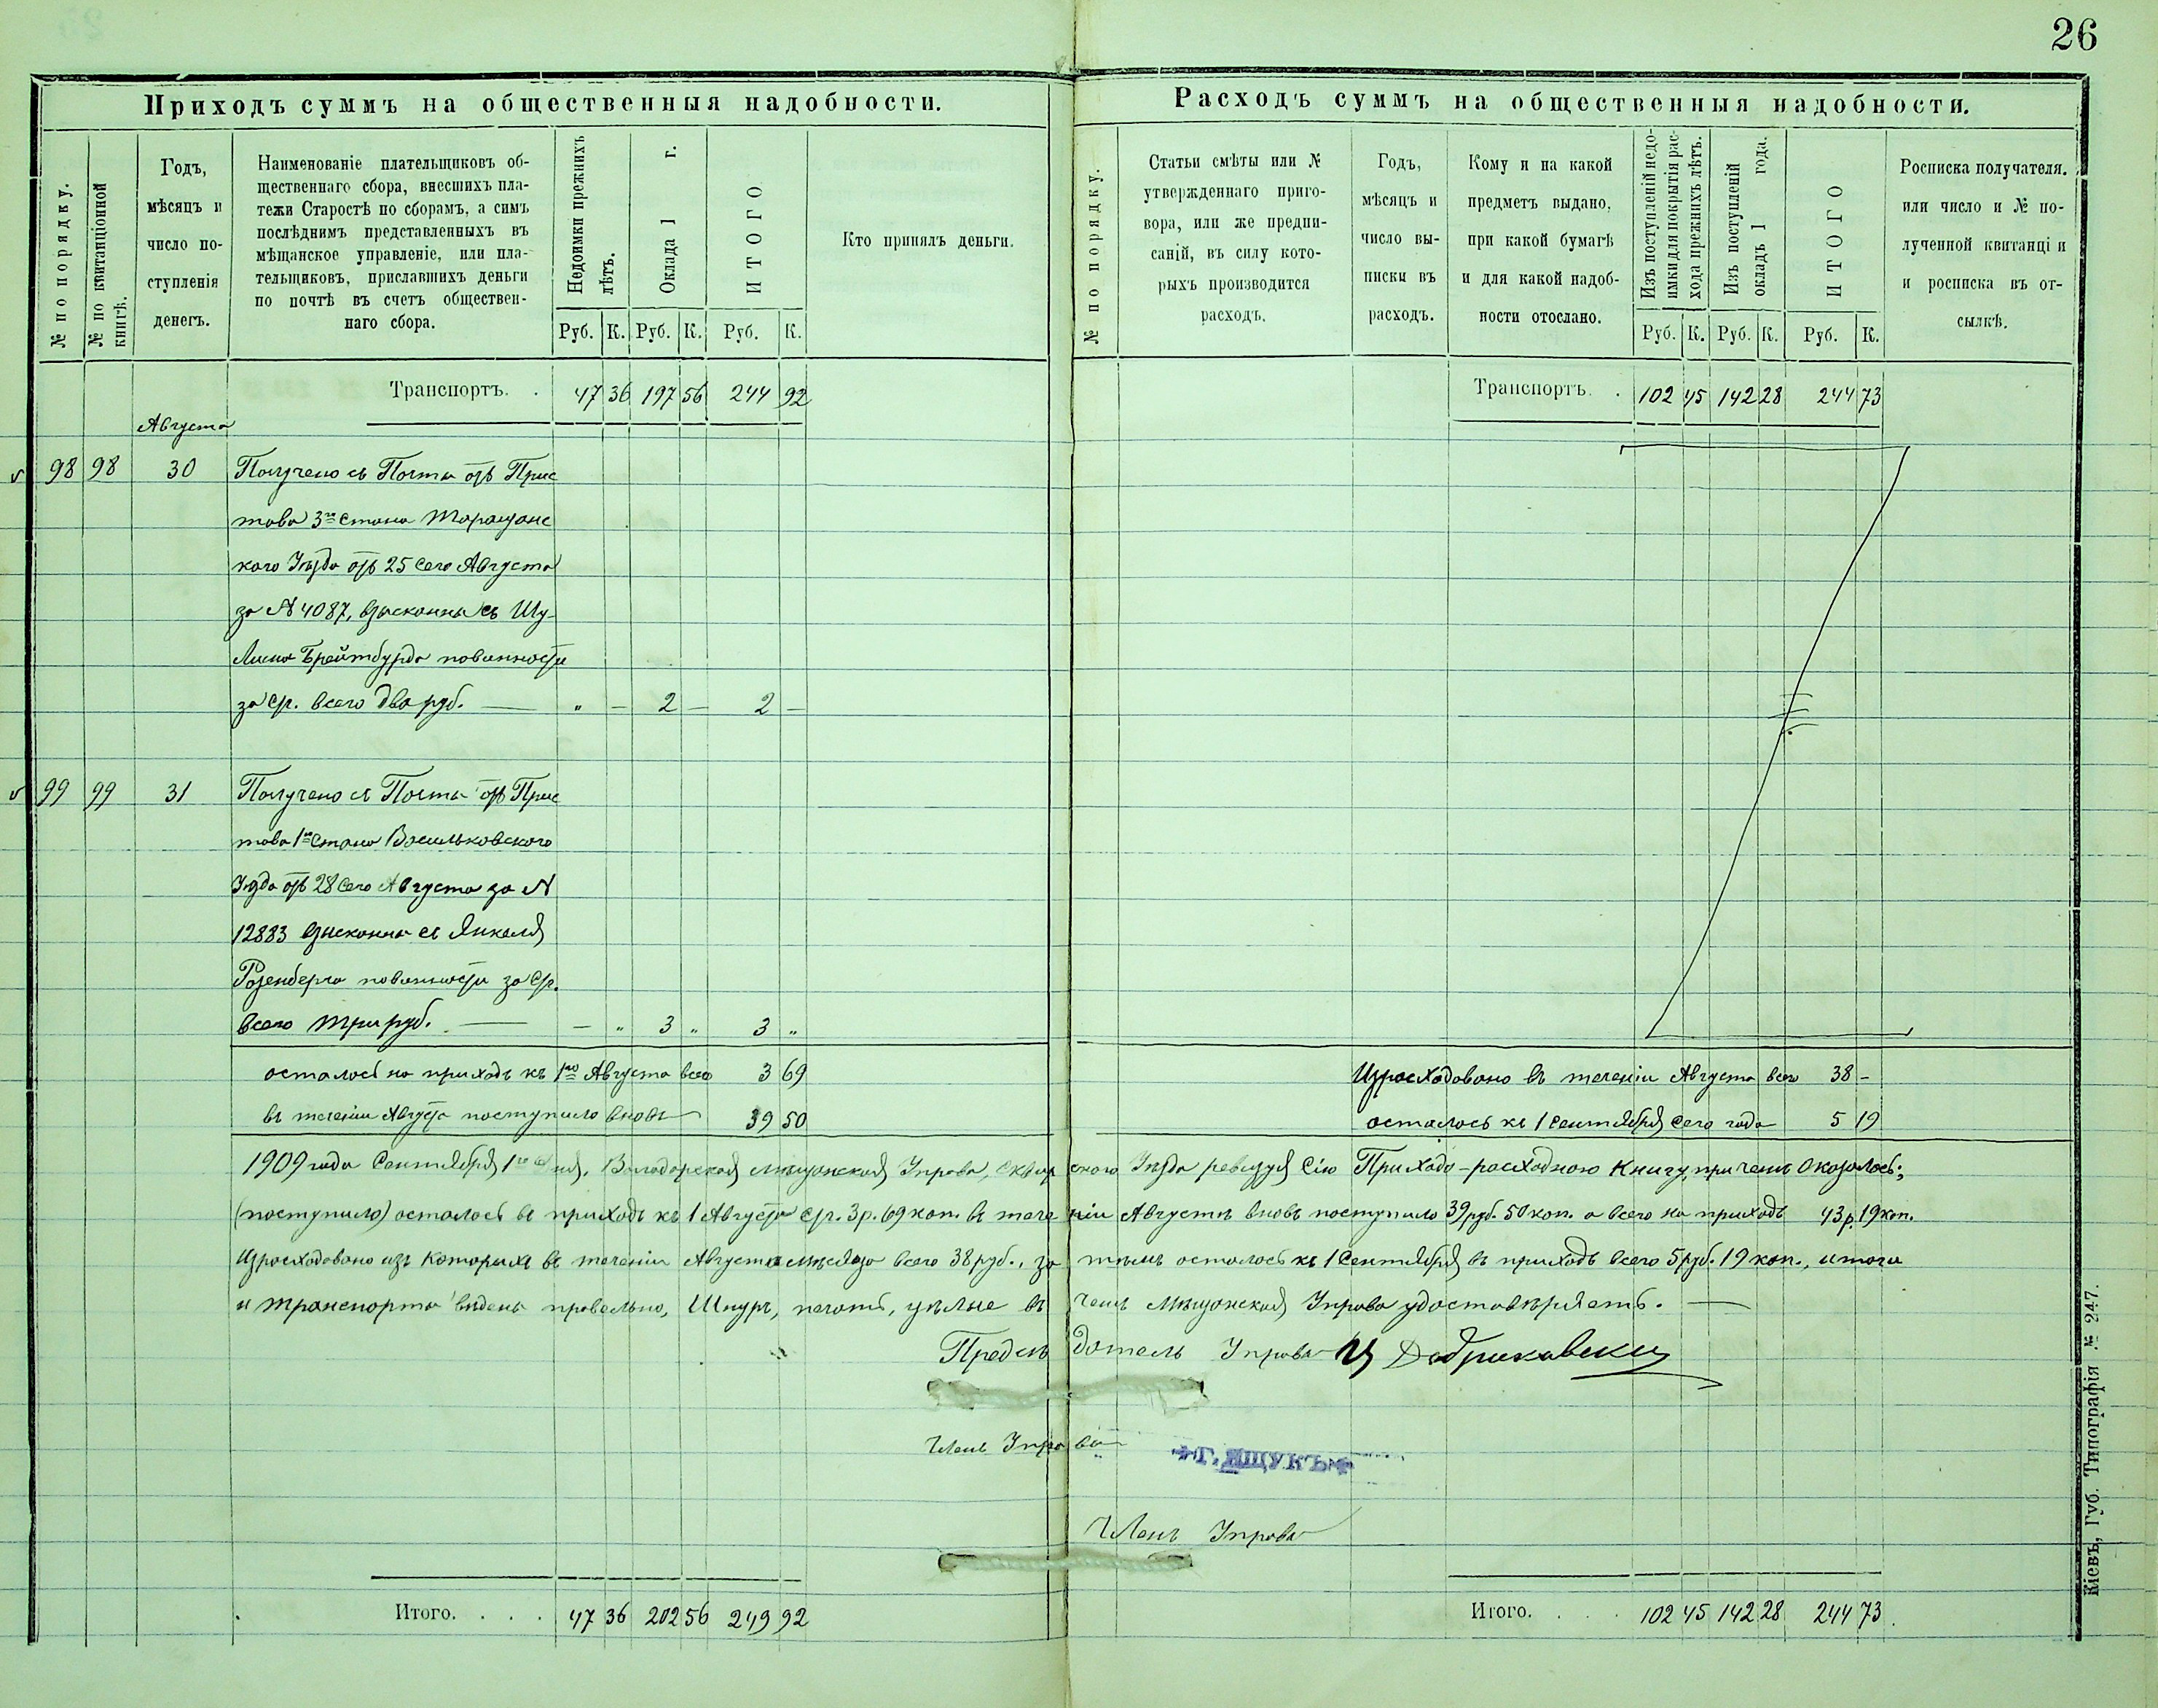 26
Приходъ суммъ на общественныя надобности.
№ по порядку.
№ по квитанціонной
книгѣ.
Годъ,
мѣсяцъ и
число по-
ступленія
денегъ.
Наименованіе плательщиковъ об-
щественнаго сбора, внесшихъ пла-
тежи Старостѣ по сборамъ, а симъ
послѣднимъ представленныхъ въ
мѣщанское управленіе, или пла-
тельщиковъ, приславшихъ деньги
по почтѣ въ счетъ обществен-
наго сбора.
Недоимки прежнихъ
лѣтъ.
Оклада 1 г.
ИТОГО
Руб. К. Руб. К. Руб. К.
Кто принялъ деньги.
Транспортъ. . 47 36 197 56 244 92
Августа
98 98 30 Получено съ Почты отъ Прис
тава 3го Стана Таращанс
каго Уѣзда отъ 25 Сего Августа
за № 4087, взысканны съ Шу-
Лима Брейтбурда повинности
за с/г. всего два руб. — „ — 2 — 2 —
99 99 31 Получено съ Почты отъ Прис
тава 1го Стана Васильковскаго
Уѣзда отъ 28 Сего Августа за №
12883 взысканны съ Янкеля
Розенберга повинности за с/г.
всего три руб. — — „ 3 „ 3 „
осталось на приходъ къ 1го Августа всего 3 69
въ теченіи Августа поступило вновь 39 50
Расходъ суммъ на общественныя надобности.
№ по порядку.
Статьи смѣты или №
утвержденнаго приго-
вора, или же предпи-
саній, въ силу кото-
рыхъ производится
расходъ.
Годъ,
мѣсяцъ и
число вы-
писки въ
расходъ.
Кому и на какой
предметъ выдано,
при какой бумагѣ
и для какой надоб-
ности отослано.
Изъ поступленій недо-
имки для покрытія рас-
хода прежнихъ лѣтъ.
Изъ поступленій
окладъ 1 года.
ИТОГО
Руб. К. Руб. К. Руб. К.
Росписка получателя.
или число и № по-
лученной квитанціи
и росписка въ от-
сылкѣ.
Транспортъ. . 102 45 142 28 244 73
Израсходовано въ теченіи Августа всего 38 —
осталось къ 1 Сентября сего года 5 19
1909 года Сентября 1го дня, Володарская мѣщанская Управа, Сквирскаго Уѣзда ревизуя Сію Приходо-расходную Книгу, при чемъ Оказалось:
(поступило) осталось въ приходъ къ 1 Августа с/г. 3 р. 69 коп. въ теченіи Августа вновь поступило 39 руб. 50 коп. а всего на приходъ 43 р. 19 коп.
Израсходовано изъ которыхъ въ теченіи Августа мѣсяца всего 38 руб., за тѣмъ осталось къ 1 Сентября въ приходъ всего 5 руб. 19 коп., итоги
и транспорты ведены правельно, Шнуръ, печать, цѣлые въ чемъ мѣщанская Управа удостовѣряетъ. —
Предсѣдатель Управы
Членъ Управы
Г. ЯЩУКЪ
Членъ Управы
Итого. . . . 47 36 202 56 249 92
Итого. . . . 102 45 142 28 244 73
Кіевъ, Губ. Типографія № 247.